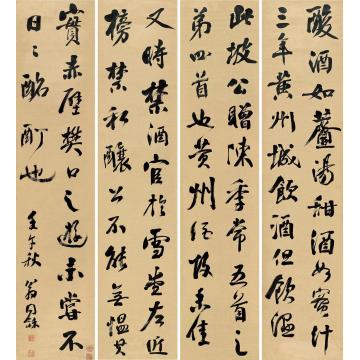 酸酒如虀湯甜酒如蜜汁
三年黄州城飲酒但飲溼
此坡公贈陳季常五首之
第四首也黄州未佳
又時禁酒官於雪堂左近
榜禁私釀公不能無慍其
實赤壁樊口之遊未嘗不
日〻酩酊也 壬午秋 翁同龢